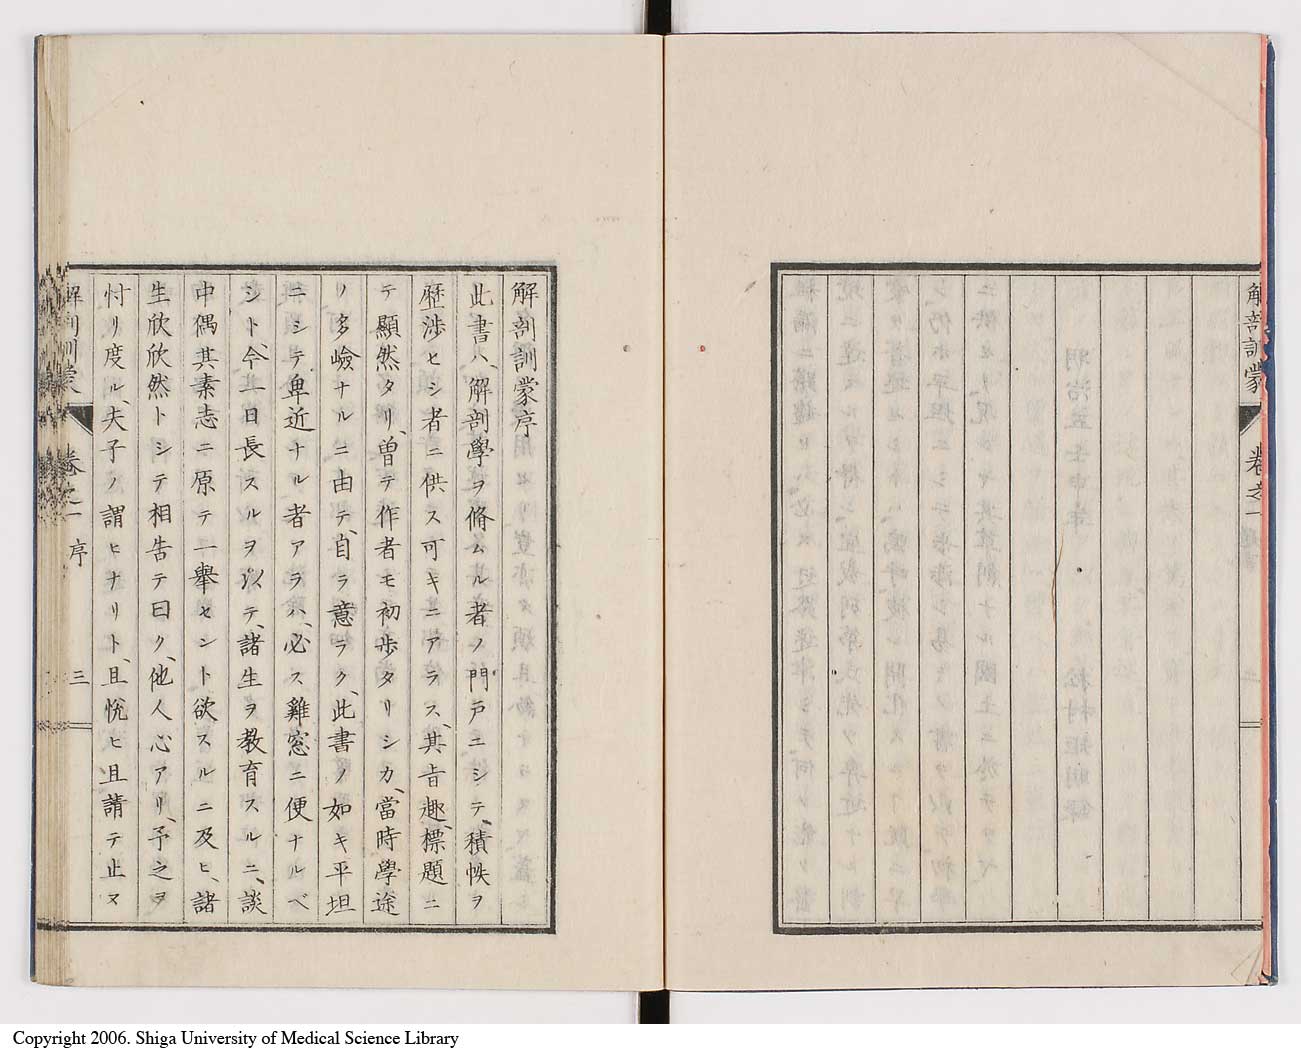 解剖訓蒙
卷之一
解剖訓蒙序
此書ハ、解剖學ヲ脩ムル者ノ門戸ニシテ、積帙ヲ
歴渉セシ者ニ供ス可キニアラス、其旨趣、標題ニ
テ顯然タリ、曽テ作者モ初歩タリシカ、當時學途
ノ多嶮ナルニ由テ、自ラ意ラク、此書ノ如キ平坦
ニシテ卑近ナル者アラハ、必ス雞窓ニ便ナルベ
シト、今一日長スルヲ以テ、諸生ヲ教育スルニ、談
中偶其素志ニ原テ一擧セント欲スルニ及ヒ、諸
生欣欣然トシテ相告テ曰ク、他人心アリ、予之ヲ
忖リ度ル、夫子ノ謂ヒナリト、且悦ヒ且請テ止マ
解剖訓蒙 卷之一 序 三
Copyright 2006. Shiga University of Medical Science Library